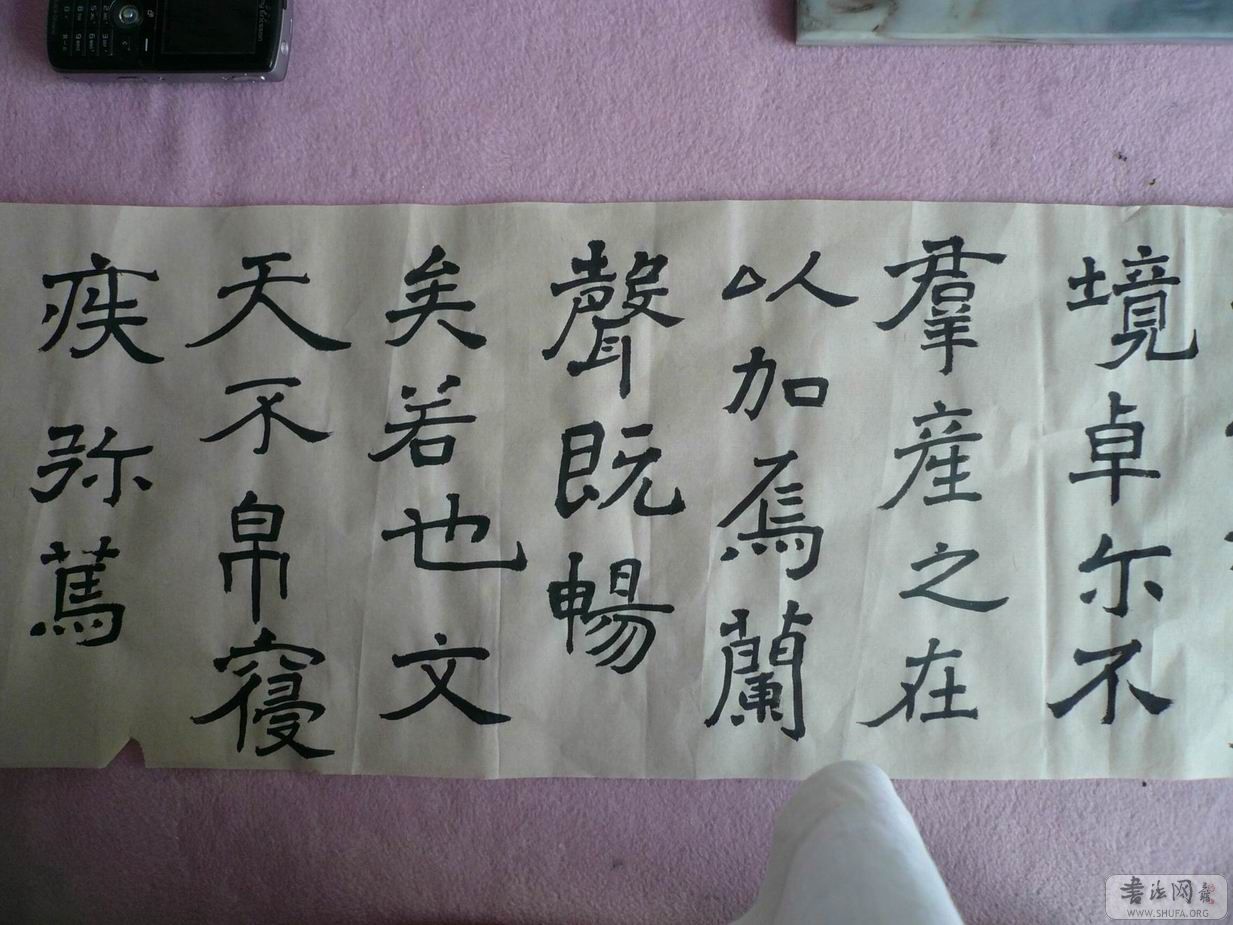 境卓尔不
羣產之在
以加焉蘭
聲既暢
矣若也文
天不帛寑
疾弥篤
书法网
WWW.SHUFA.ORG